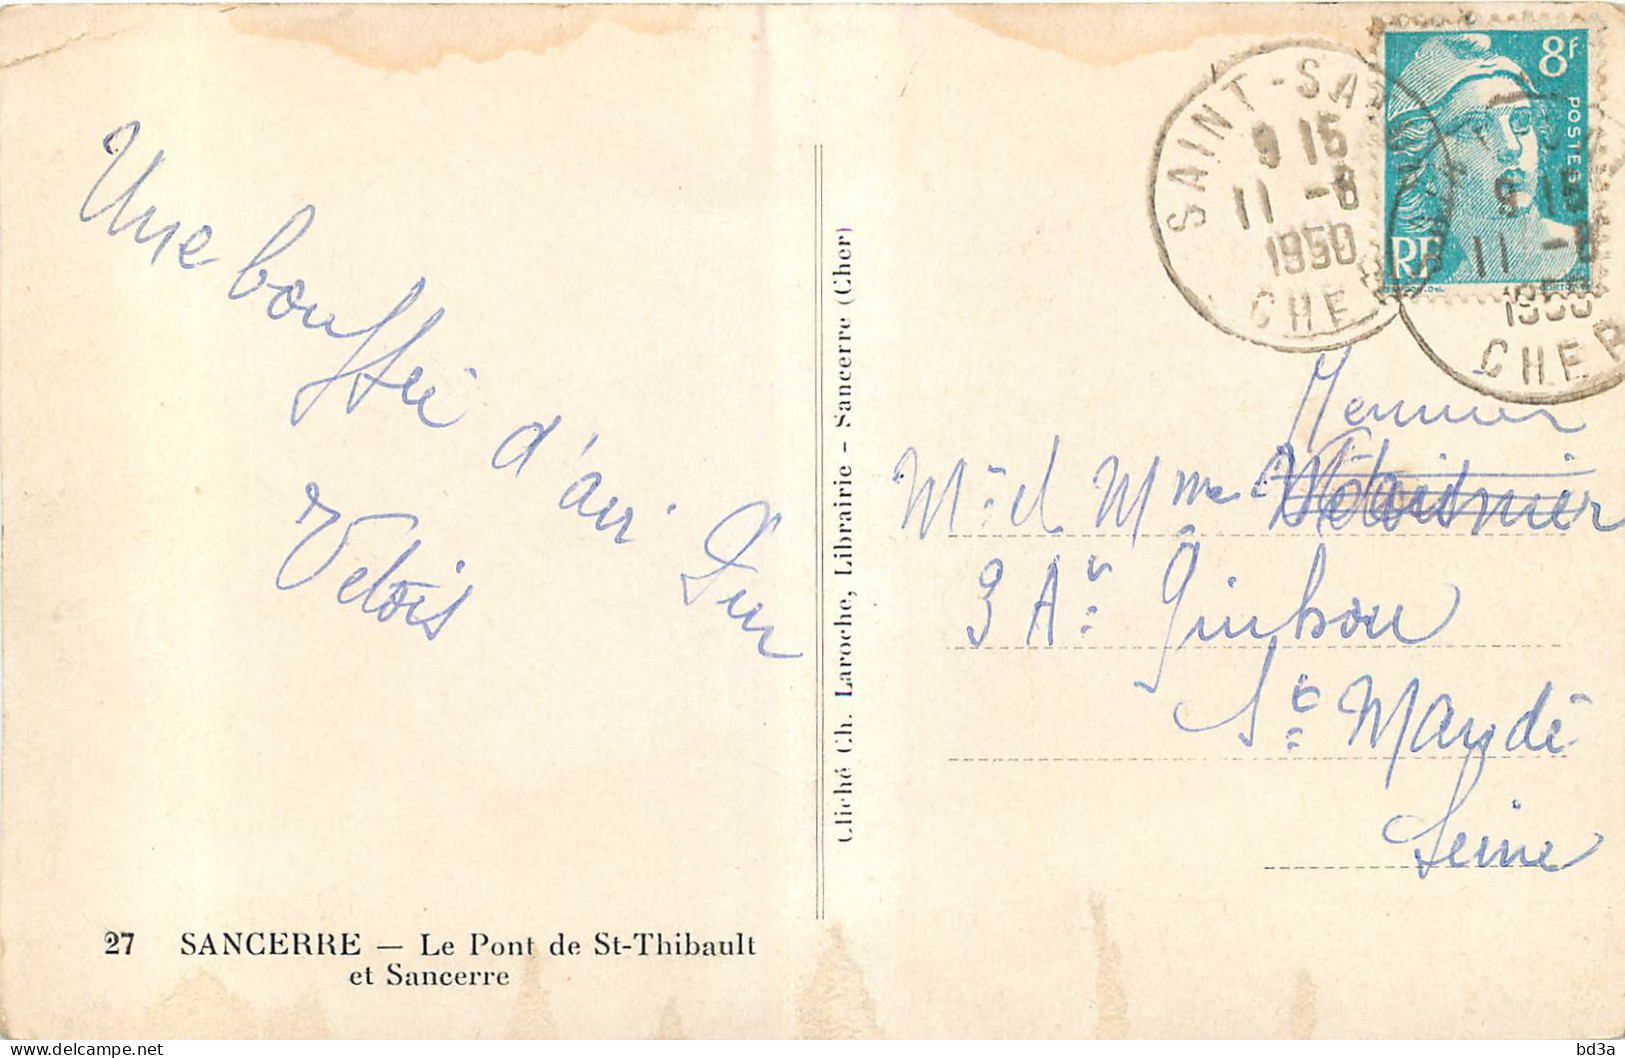 Une bouffée d'air pur
Vetois
27 SANCERRE — Le Pont de St-Thibault
et Sancerre
Cliché Ch. Laroche, Librairie - Sancerre (Cher)
8F
POSTES
RF
SAINT-SA
9 15
11 -8
1950
CHER
9 15
11 -8
1950
CHER
Meunier
Mr et Mme
3 Av: Quihou
St Mandé
Seine
bd3a